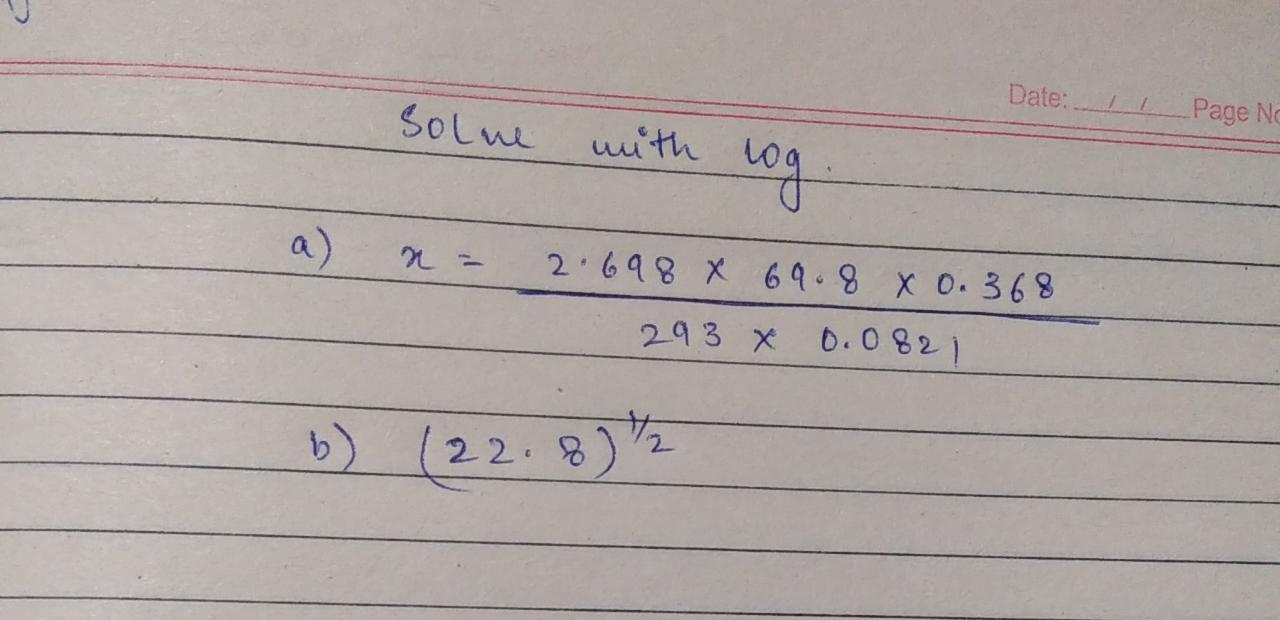 Date: / / Page No
Solve with log.
a) x = 2.698 x 69.8 x 0.368
293 x 0.0821
b) (22.8)^1/2